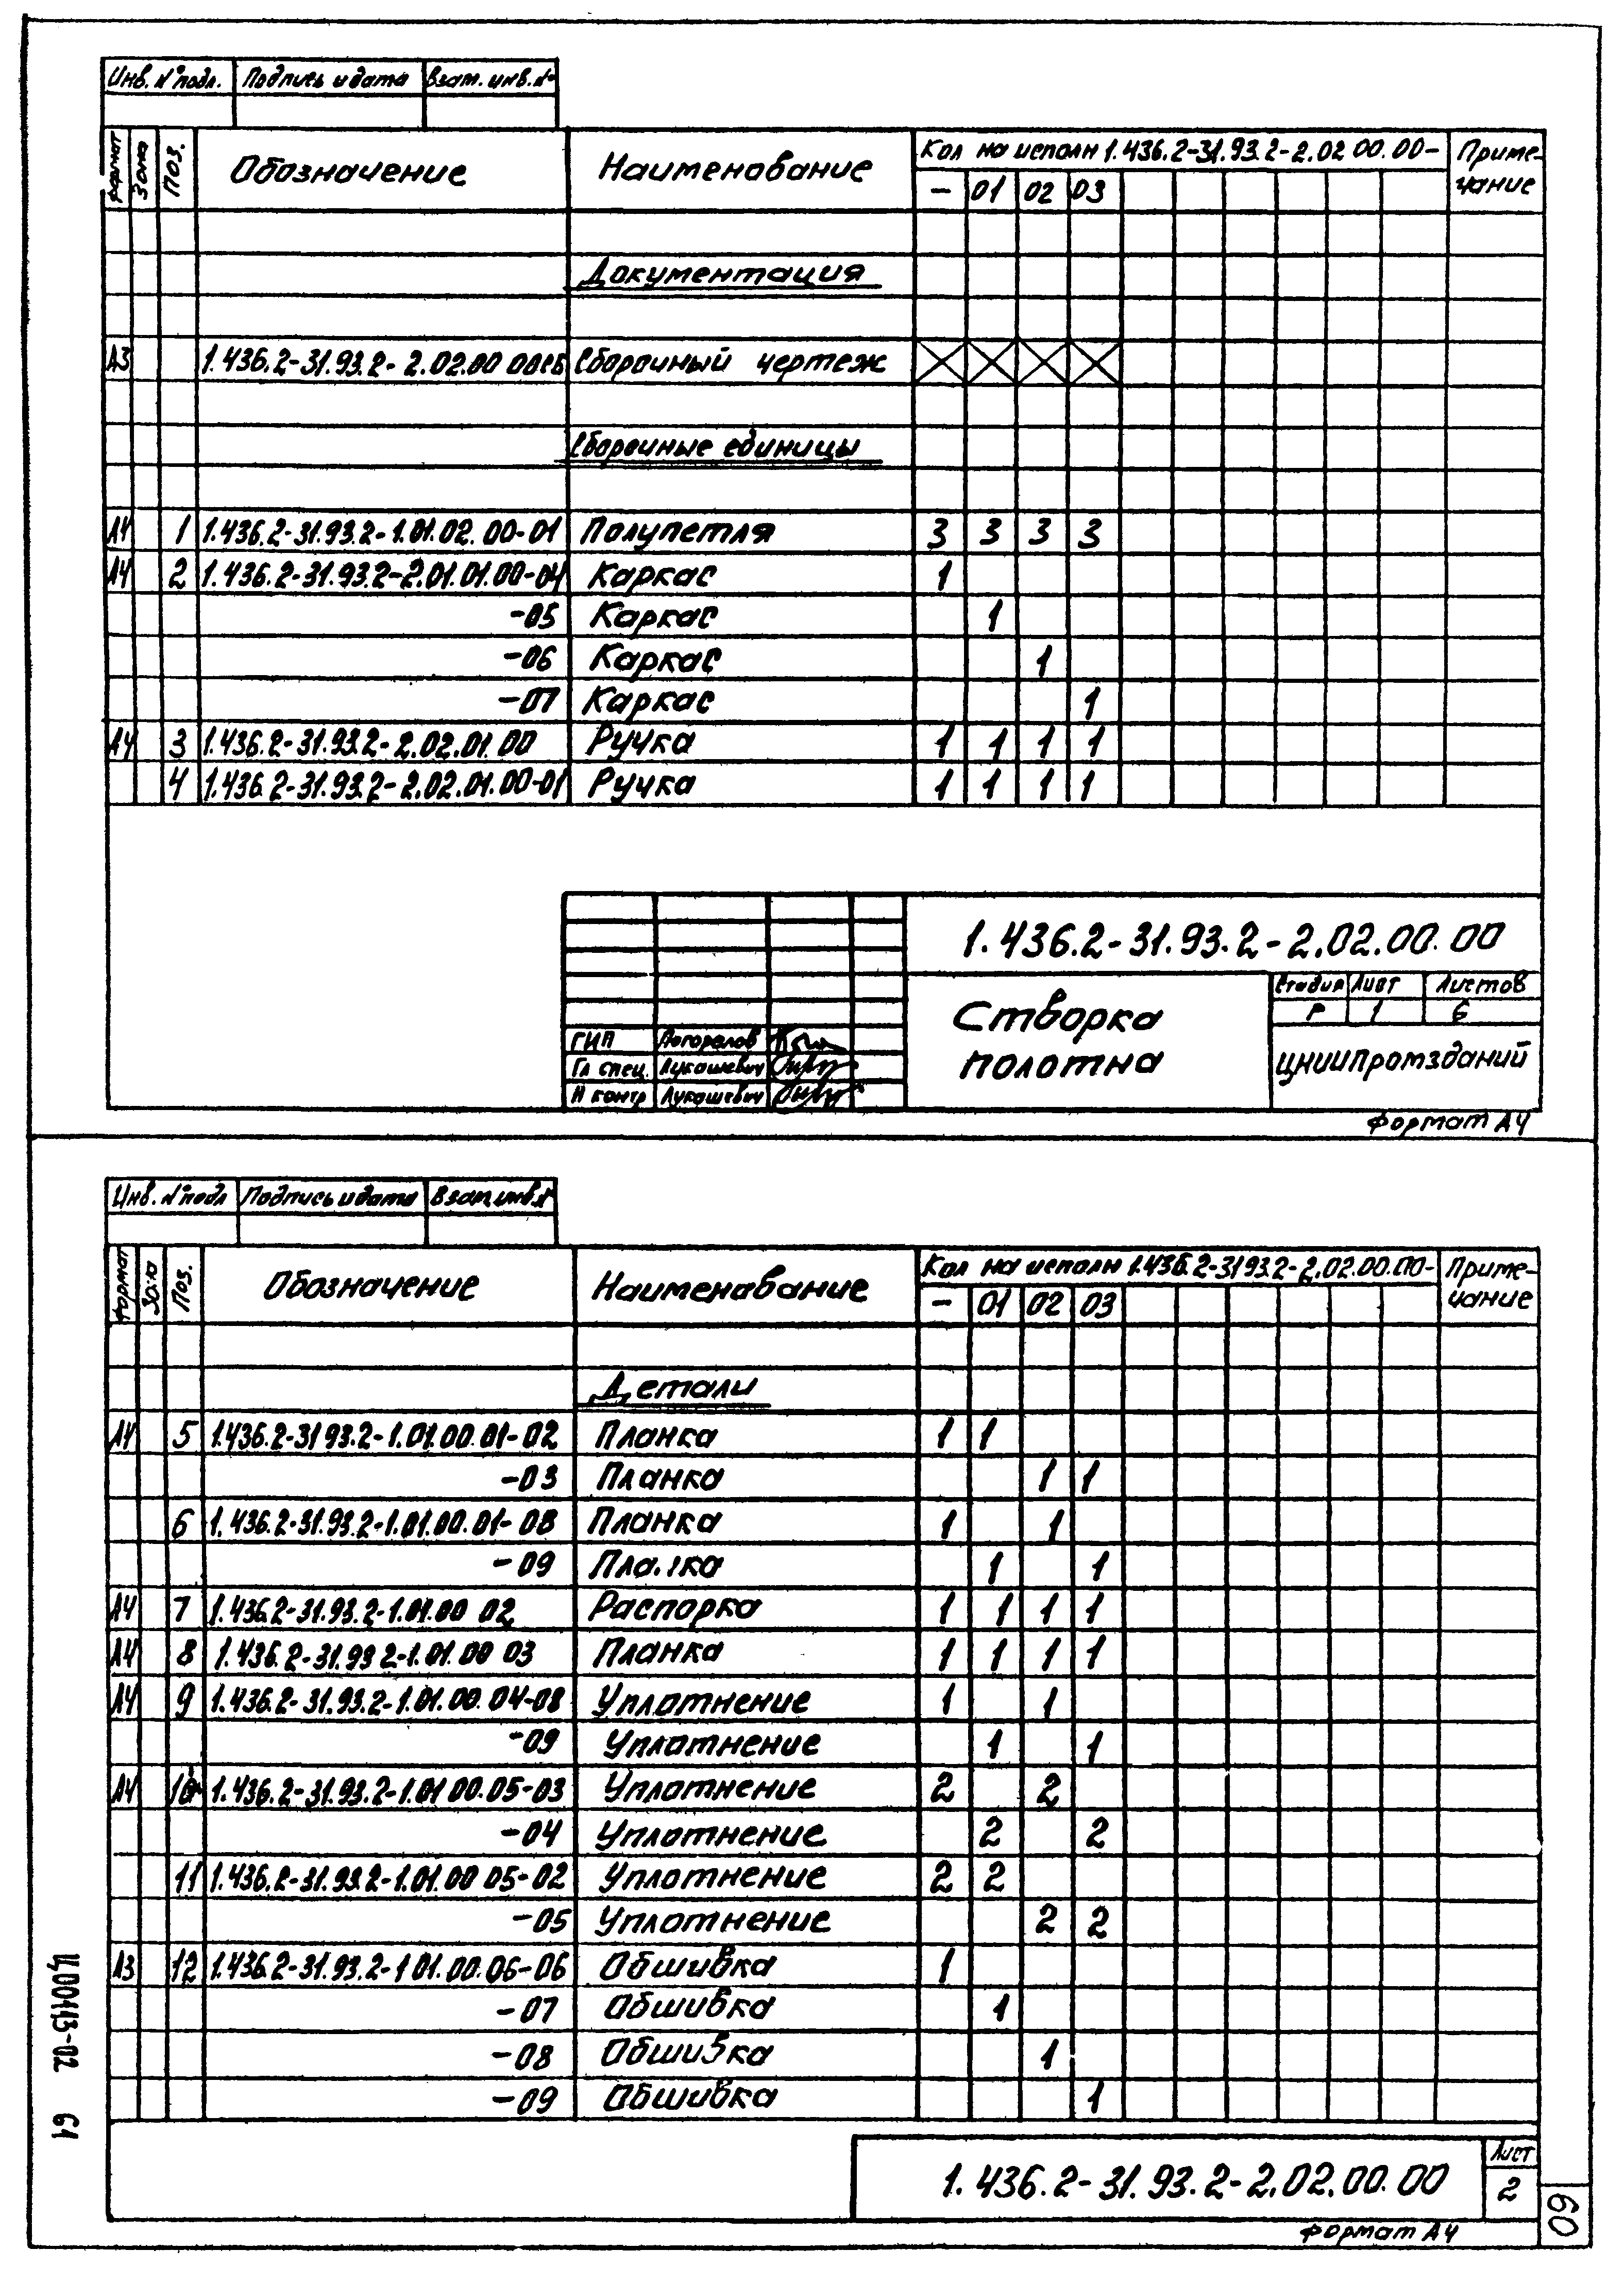 Инв. № подл. Подпись и дата Взам. инв. №
Формат Зона Поз. Обозначение Наименование Кол на исполн 1.436.2-31.93.2-2.02 00.00- Приме-
чание
- 01 02 03
Документация
А3 1.436.2-31.93.2-2.02.00 00СБ Сборочный чертеж
Сборочные единицы
А4 1 1.436.2-31.93.2-1.01.02.00-01 Полупетля 3 3 3 3
А4 2 1.436.2-31.93.2-2.01.01.00-04 Каркас 1
-05 Каркас 1
-06 Каркас 1
-07 Каркас 1
А4 3 1.436.2-31.93.2-2.02.01.00 Ручка 1 1 1 1
4 1.436.2-31.93.2-2.02.01.00-01 Ручка 1 1 1 1
1.436.2-31.93.2-2.02.00.00
Створка
полотна
Стадия Лист Листов
Р 1 6
ЦНИИПромзданий
ГИП Погорелов
Гл спец. Лукашевич
Н контр Лукашевич
Формат А4
Инв. № подл Подпись и дата Взам инв. №
Формат Зона Поз. Обозначение Наименование Кол на исполн 1.436.2-31 93.2-2.02.00.00- Приме-
чание
- 01 02 03
Детали
А4 5 1.436.2-31 93.2-1.01.00.01-02 Планка 1 1
-03 Планка 1 1
6 1.436.2-31.93.2-1.01.00.01-08 Планка 1 1
-09 Планка 1 1
А4 7 1.436.2-31.93.2-1.01.00 02 Распорка 1 1 1 1
А4 8 1.436.2-31.93 2-1.01.00 03 Планка 1 1 1 1
А4 9 1.436.2-31.93.2-1.01.00.04-08 Уплотнение 1 1
-09 Уплотнение 1 1
А4 10 1.436.2-31.93.2-1.01 00.05-03 Уплотнение 2 2
-04 Уплотнение 2 2
11 1.436.2-31.93.2-1.01.00 05-02 Уплотнение 2 2
-05 Уплотнение 2 2
А3 12 1.436.2-31.93.2-1 01.00.06-06 Обшивка 1
-07 Обшивка 1
-08 Обшивка 1
-09 Обшивка 1
1.436.2-31.93.2-2.02.00.00
Лист
2
Формат А4
Ц00113-02 61
60